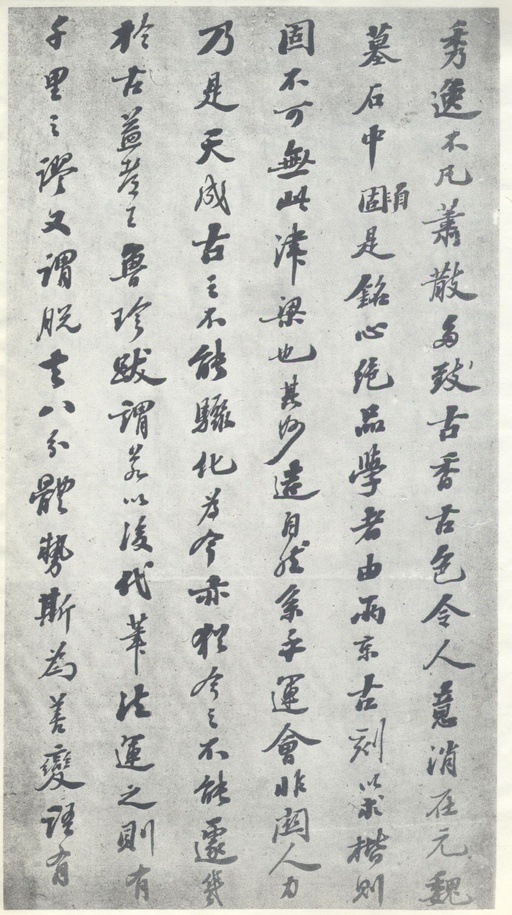 秀逸不凡蕭散多致古香古色令人意消在元魏
墓石中固是銘心絕品學者由兩京古刻以求楷則
固不可無此津梁也其妙造自然系乎運會非關人力
乃是天成古之不能驟化為今亦猶今之不能遽幾
於古魯珍跋謂若以後代筆法運之則有
千里之謬又謂脫去八分體勢斯為善變語有